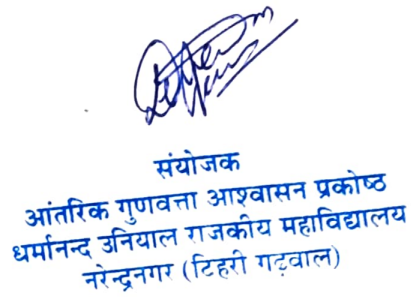 संयोजक
आंतरिक गुणवत्ता आश्वासन प्रकोष्ठ
धर्मानन्द उनियाल राजकीय महाविद्यालय
नरेन्द्रनगर (टिहरी गढ़वाल)